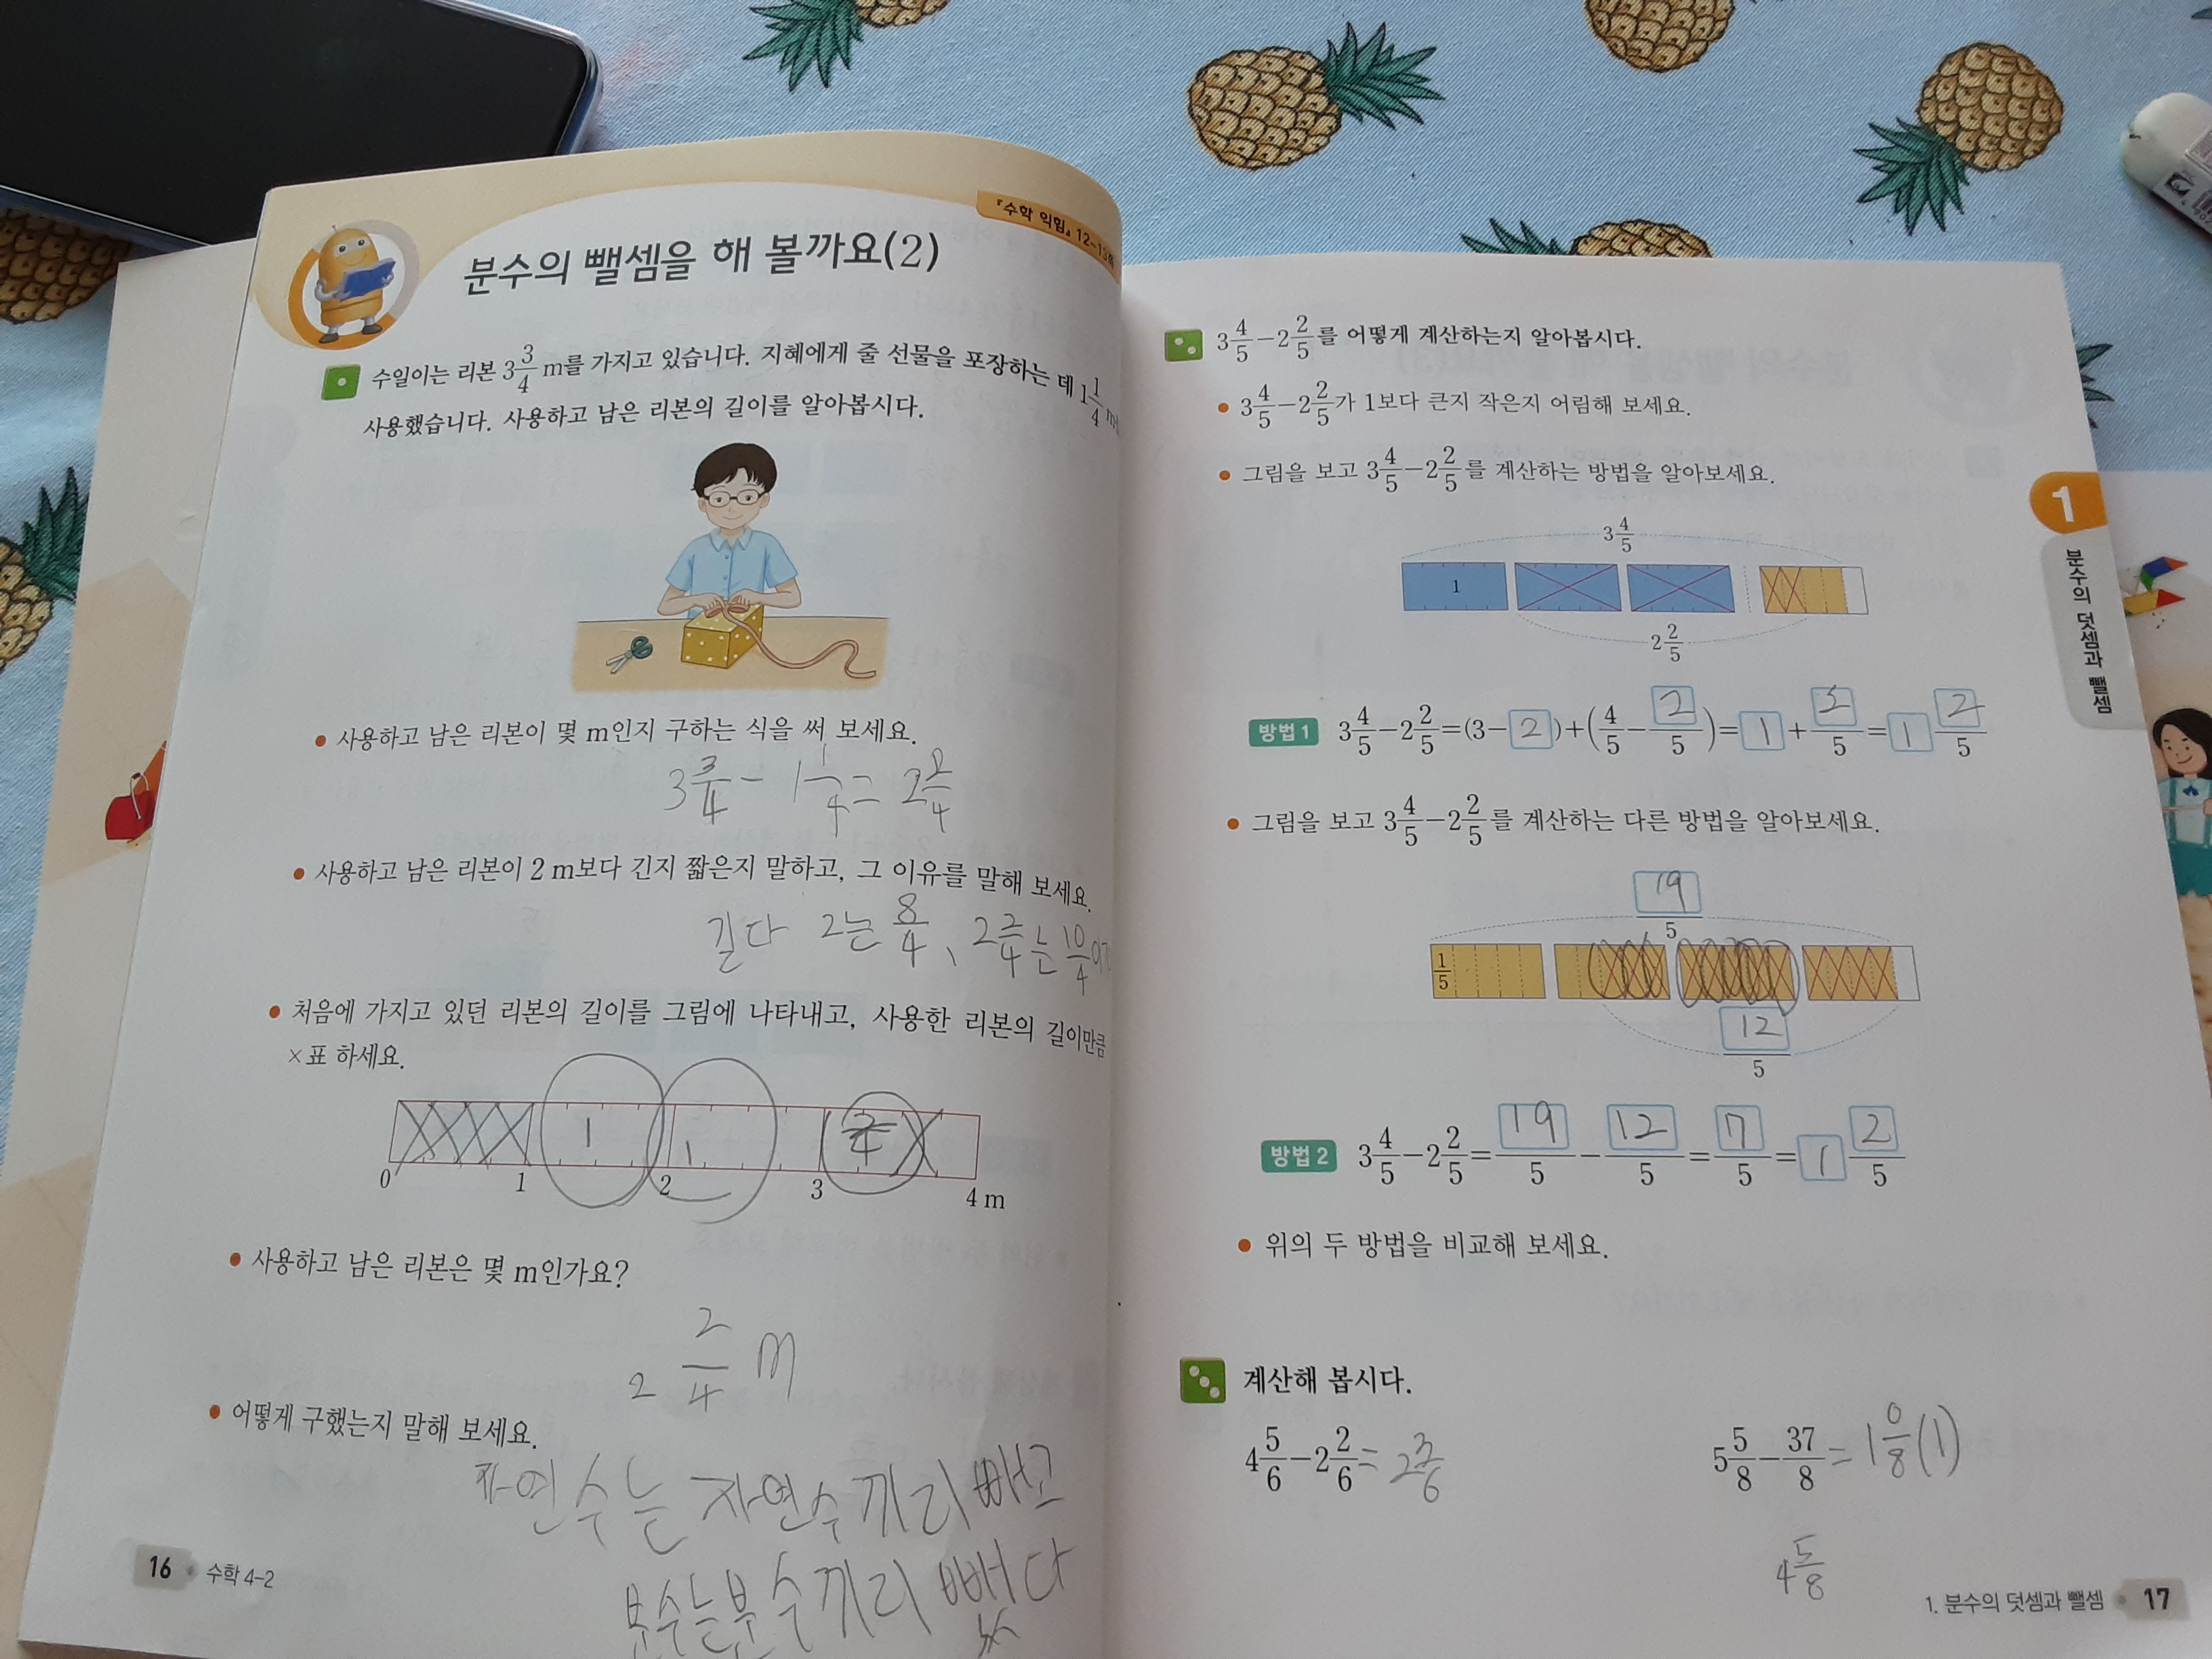 『수학 익힘』 12~13쪽
분수의 뺄셈을 해 볼까요(2)
수일이는 리본 3 3/4 m를 가지고 있습니다. 지혜에게 줄 선물을 포장하는 데 1 1/4 m
사용했습니다. 사용하고 남은 리본의 길이를 알아봅시다.
사용하고 남은 리본이 몇 m인지 구하는 식을 써 보세요.
3 3/4 - 1 1/4 = 2 2/4
사용하고 남은 리본이 2 m보다 긴지 짧은지 말하고, 그 이유를 말해 보세요.
길다 2는 8/4, 2 2/4는 10/4
처음에 가지고 있던 리본의 길이를 그림에 나타내고, 사용한 리본의 길이만큼
×표 하세요.
1 1 2/4
0 1 2 3 4 m
사용하고 남은 리본은 몇 m인가요?
2 2/4 m
어떻게 구했는지 말해 보세요.
자연수는 자연수끼리 빼고
분수는 분수끼리 뺐다
16 수학 4-2
3 4/5 - 2 2/5를 어떻게 계산하는지 알아봅시다.
3 4/5 - 2 2/5가 1보다 큰지 작은지 어림해 보세요.
그림을 보고 3 4/5 - 2 2/5를 계산하는 방법을 알아보세요.
3 4/5
1
2 2/5
방법 1 3 4/5 - 2 2/5 = (3 - 2) + (4/5 - 2/5) = 1 + 2/5 = 1 2/5
그림을 보고 3 4/5 - 2 2/5를 계산하는 다른 방법을 알아보세요.
19/5
1/5
12/5
방법 2 3 4/5 - 2 2/5 = 19/5 - 12/5 = 7/5 = 1 2/5
위의 두 방법을 비교해 보세요.
계산해 봅시다.
4 5/6 - 2 2/6 = 2 3/6 5 5/8 - 37/8 = 1 0/8 (1)
4 5/8
1. 분수의 덧셈과 뺄셈 17
1
분수의 덧셈과 뺄셈